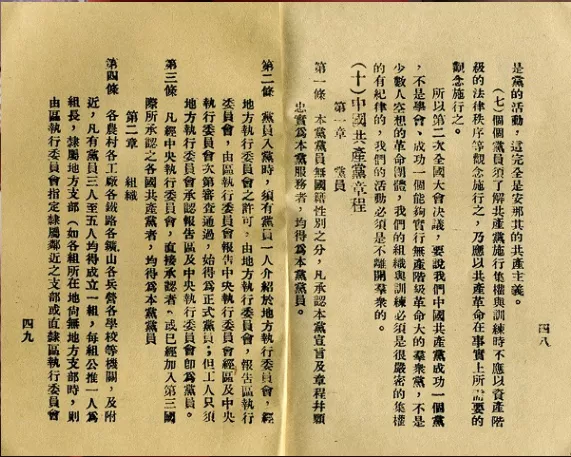 四八
是黨的活動，這完全是安那其的共產主義。
（七）個個黨員須了解共產黨施行集權與訓練時不應以資產階
級的法律秩序等觀念施行之，乃應以共產革命在事實上所需要的
觀念施行之。
所以第二次全國大會決議，要說我們中國共產黨成功一個黨
，不是學會、成功一個能夠實行無產階級革命大的羣衆黨，不是
少數人空想的革命團體，我們的組織與訓練必須是很嚴密的集權
的有紀律的，我們的活動必須是不離開羣衆的。
（十）中國共產黨章程
第一章　黨員
第一條　本黨黨員無國籍性別之分，凡承認本黨宣言及章程幷願
忠實爲本黨服務者，均得爲本黨黨員。
第二條　黨員入黨時，須有黨員一人介紹於地方執行委員會，經
地方執行委員會之許可，由地方執行委員會，報告區執行
委員會，由區執行委員會報告中央執行委員會經區及中央
執行委員會次第審查通過，始得爲正式黨員；但工人只須
地方執行委員會承認報告區及中央執行委員會卽爲黨員。
第三條　凡經中央執行委員會，直接承認者，或已經加入第三國
際所承認之各國共產黨者，均得爲本黨黨員
第二章　組織
第四條　各農村各工廠各鐵路各鑛山各兵營各學校等機關，及附
近，凡有黨員三人至五人均得成立一組，每組公推一人爲
組長，隸屬地方支部（如各組所在地尙無地方支部時，則
由區執行委員會指定隸屬鄰近之支部或直隸區執行委員會
四九